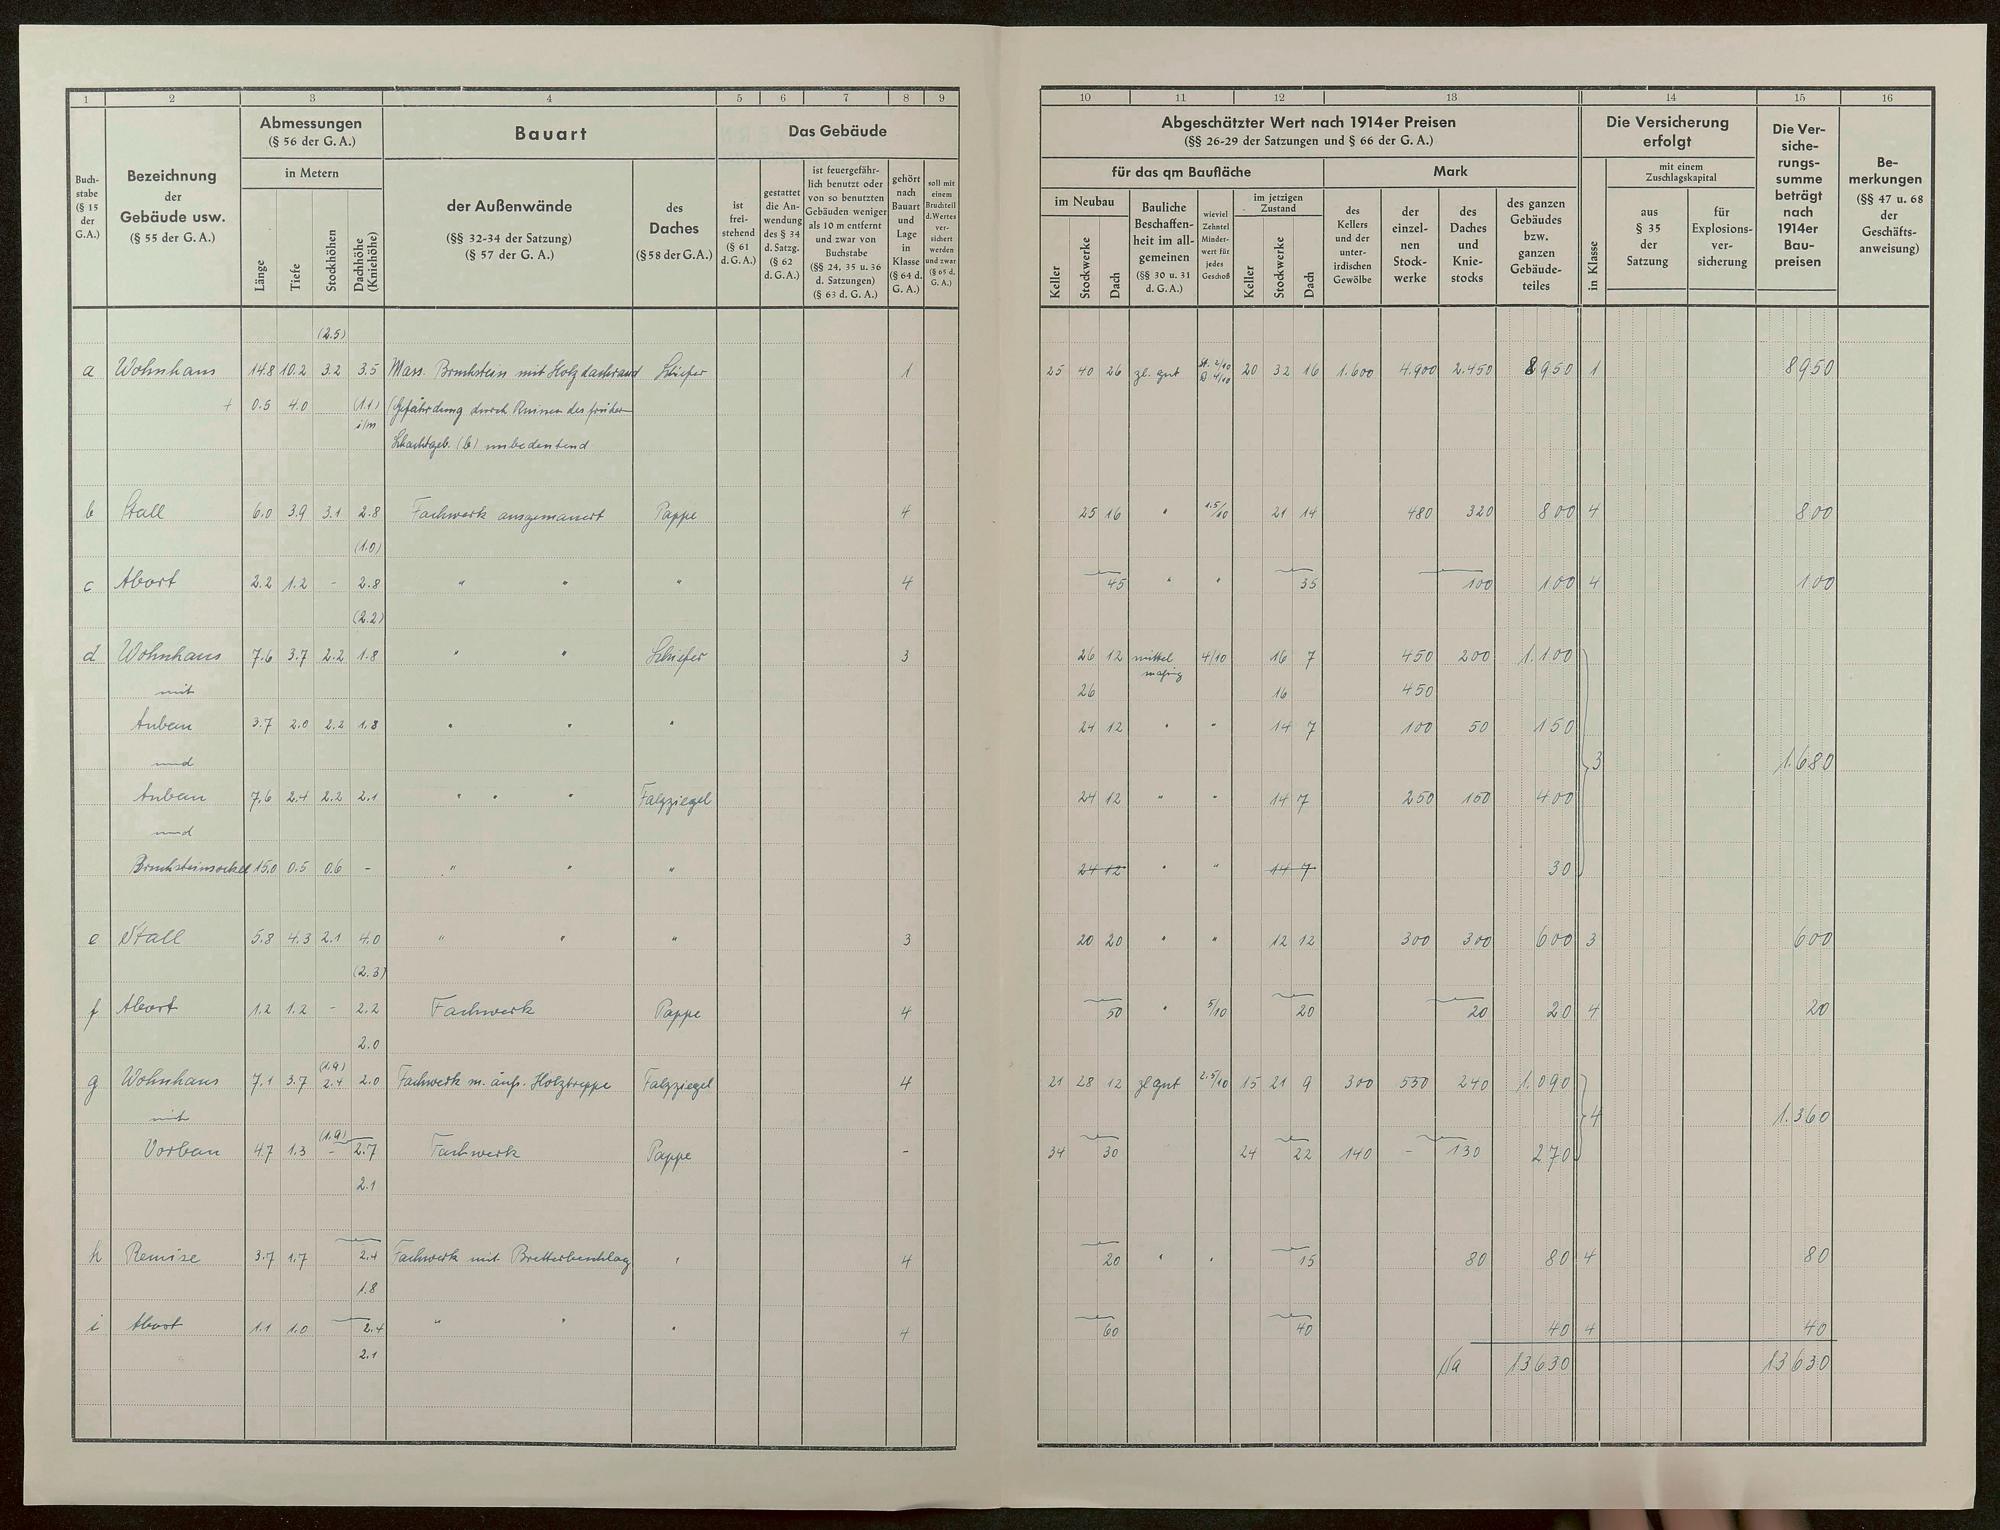 1 2 3 4 5 6 7 8 9
Buch-
stabe
(§ 15
der
G.A.)
Bezeichnung
der
Gebäude usw.
(§ 55 der G. A.)
Abmessungen
(§ 56 der G. A.)
in Metern
Länge
Tiefe
Stockhöhen
Dachhöhe
(Kniehöhe)
Bauart
der Außenwände
(§§ 32-34 der Satzung)
(§ 57 der G. A.)
des
Daches
(§ 58 der G.A.)
Das Gebäude
ist
frei-
stehend
(§ 61
d. G. A.)
gestattet
die An-
wendung
des § 34
d. Satzg.
(§ 62
d. G. A.)
ist feuergefähr-
lich benutzt oder
von so benutzten
Gebäuden weniger
als 10 m entfernt
und zwar von
Buchstabe
(§§ 24, 35 u. 36
d. Satzungen)
(§ 63 d. G. A.)
gehört
nach
Bauart
und
Lage
in
Klasse
(§ 64 d.
G. A.)
soll mit
einem
Bruchteil
d. Wertes
ver-
sichert
werden
und zwar
(§ 65 d.
G. A.)
(2.5)
a Wohnhaus 14.8 10.2 3.2 3.5 Mass. Bruchstein mit Holzdachrand Schiefer 1
+ 0.5 4.0 (1.1) (Gefährdung durch Ruinen des früher
i/m
Schachtgeb. (b) unbedeutend
b Stall 6.0 3.9 3.1 2.8 Fachwerk ausgemauert Pappe 4
(1.0)
c Abort 2.2 1.2 - 2.8 " " " 4
(2.2)
d Wohnhaus 7.6 3.7 2.2 1.8 " " Schiefer 3
mit
Anbau 3.7 2.0 2.2 1.8 " " "
und
Anbau 7.6 2.4 2.2 2.1 " " " Falzziegel
und
Bruchsteinsockel 15.0 0.5 0.6 - " " "
e Stall 5.8 4.3 2.1 4.0 " " " 3
(2.3)
f Abort 1.2 1.2 - 2.2 Fachwerk Pappe 4
2.0
(1.9)
g Wohnhaus 7.1 3.7 2.4 2.0 Fachwerk m. äuß. Holztreppe Falzziegel 4
mit
(1.9)
Vorbau 4.7 1.3 - 2.7 Fachwerk Pappe -
2.1
h Remise 3.7 1.7 2.4 Fachwerk mit Bretterbeschlag " 4
1.8
i Abort 1.1 1.0 2.4 " " " 4
2.1
10 11 12 13 14 15 16
Abgeschätzter Wert nach 1914er Preisen
(§§ 26-29 der Satzungen und § 66 der G. A.)
für das qm Baufläche
Mark
im Neubau
Keller
Stockwerke
Dach
Bauliche
Beschaffen-
heit im all-
gemeinen
(§§ 30 u. 31
d. G. A.)
wieviel
Zehntel
Minder-
wert für
jedes
Geschoß
im jetzigen
Zustand
Keller
Stockwerke
Dach
des
Kellers
und der
unter-
irdischen
Gewölbe
der
einzel-
nen
Stock-
werke
des
Daches
und
Knie-
stocks
des ganzen
Gebäudes
bzw.
ganzen
Gebäude-
teiles
Die Versicherung
erfolgt
in Klasse
mit einem
Zuschlagskapital
aus
§ 35
der
Satzung
für
Explosions-
ver-
sicherung
Die Ver-
siche-
rungs-
summe
beträgt
nach
1914er
Bau-
preisen
Be-
merkungen
(§§ 47 u. 68
der
Geschäfts-
anweisung)
25 40 26 zl. gut St. 2/10 D 4/10 20 32 16 1.600 4.900 2.450 8950 1 8950
25 16 " 1.5/10 21 14 480 320 800 4 800
45 " " 35 100 100 4 100
26 12 mittel 4/10 16 7 450 200 1.100
mäßig
26 16 450
24 12 " " 14 7 100 50 150
3 1.680
24 12 " " 14 7 250 150 400
24 12 " " 14 7 30
20 20 " " 12 12 300 300 600 3 600
50 " 5/10 20 20 20 4 20
21 28 12 zl gut 2.5/10 15 21 9 300 550 240 1.090
4 1.360
34 30 24 22 140 - 130 270
20 " " 15 80 80 4 80
60 40 40 4 40
Sa 13630 13630